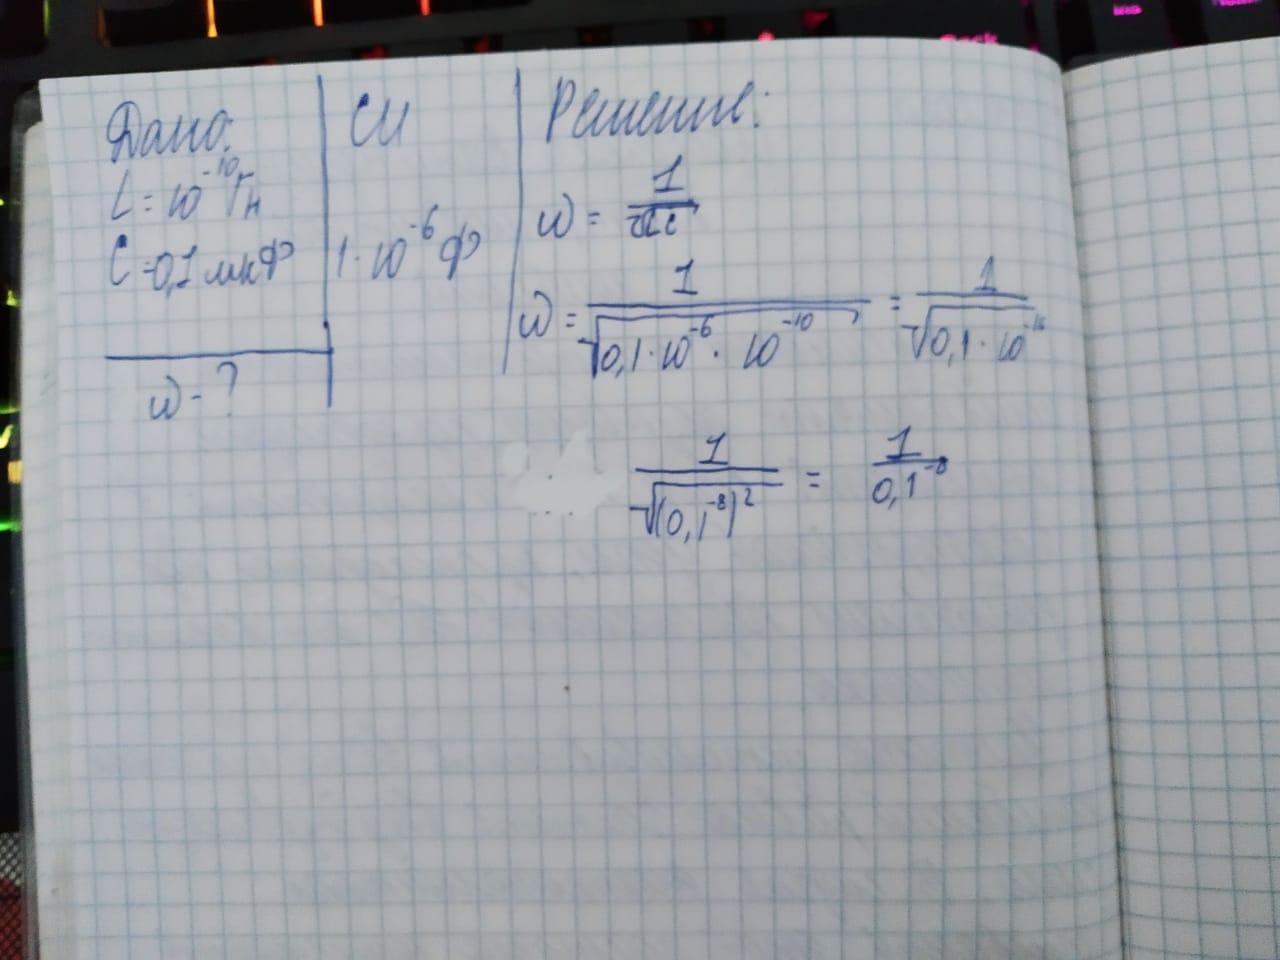 Дано:
L = 10⁻¹⁰ Гн
C = 0,1 мкФ
ω - ?
СИ
1 · 10⁻⁶ Ф
Решение:
ω = 1/√LC
ω = 1/√(0,1 · 10⁻⁶ · 10⁻¹⁰) = 1/√(0,1 · 10⁻¹⁶)
1/√((0,1⁻⁸)²) = 1/0,1⁻⁸
Back